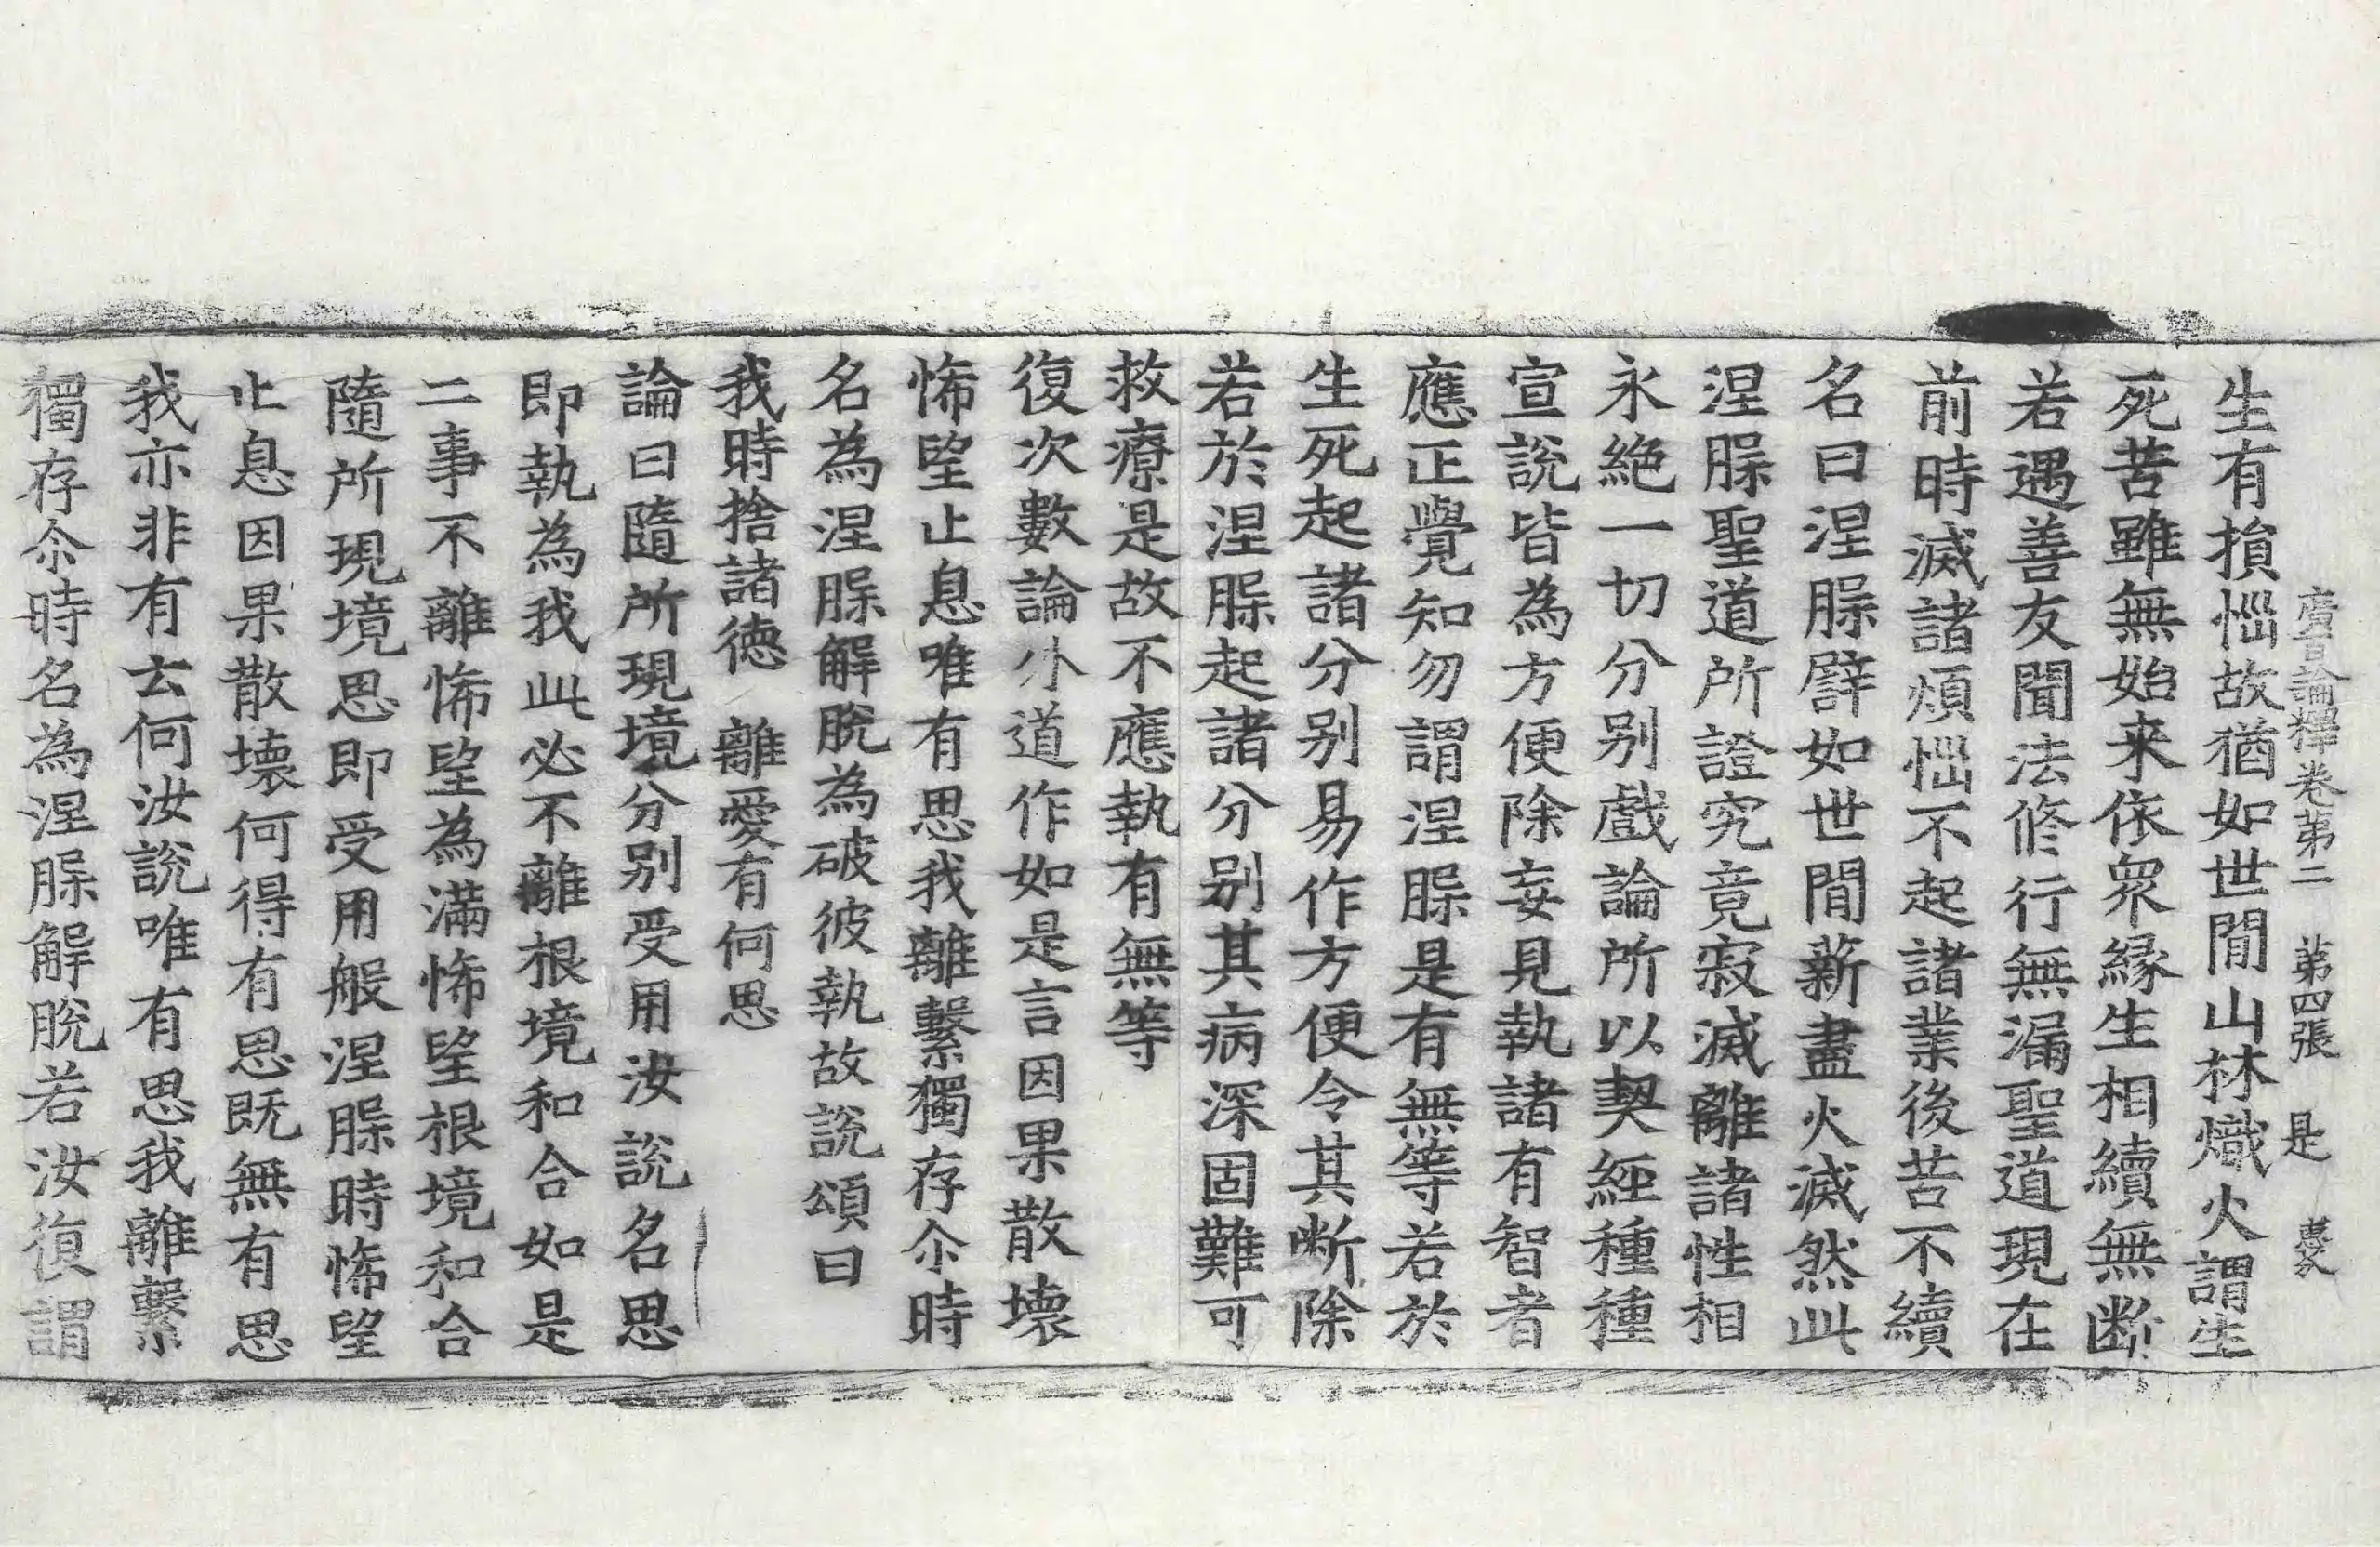 廣百論釋卷第二　第四張　是
生有損惱故猶如世間山林熾火謂生
死苦雖無始来依衆縁生相續無断
若遇善友聞法修行無漏聖道現在
前時滅諸煩惱不起諸業後苦不續
名曰涅槃譬如世間薪盡火滅然此
涅槃聖道所證究竟寂滅離諸性相
永絶一切分别戲論所以契經種種
宣說皆為方便除妄見執諸有智者
應正覺知勿謂涅槃是有無等若於
生死起諸分别易作方便令其断除
若於涅槃起諸分别其病深固難可
救療是故不應執有無等
復次數論外道作如是言因果散壞
悕望止息唯有思我離繫獨存尒時
名為涅槃解脫為破彼執故說頌曰
我時捨諸德　離愛有何思
論曰隨所現境分别受用汝說名思
即執為我此必不離根境和合如是
二事不離悕望為滿悕望根境和合
隨所現境思即受用般涅槃時悕望
止息因果散壞何得有思既無有思
我亦非有云何汝說唯有思我離繫
獨存尒時名為涅槃解脫若汝復謂